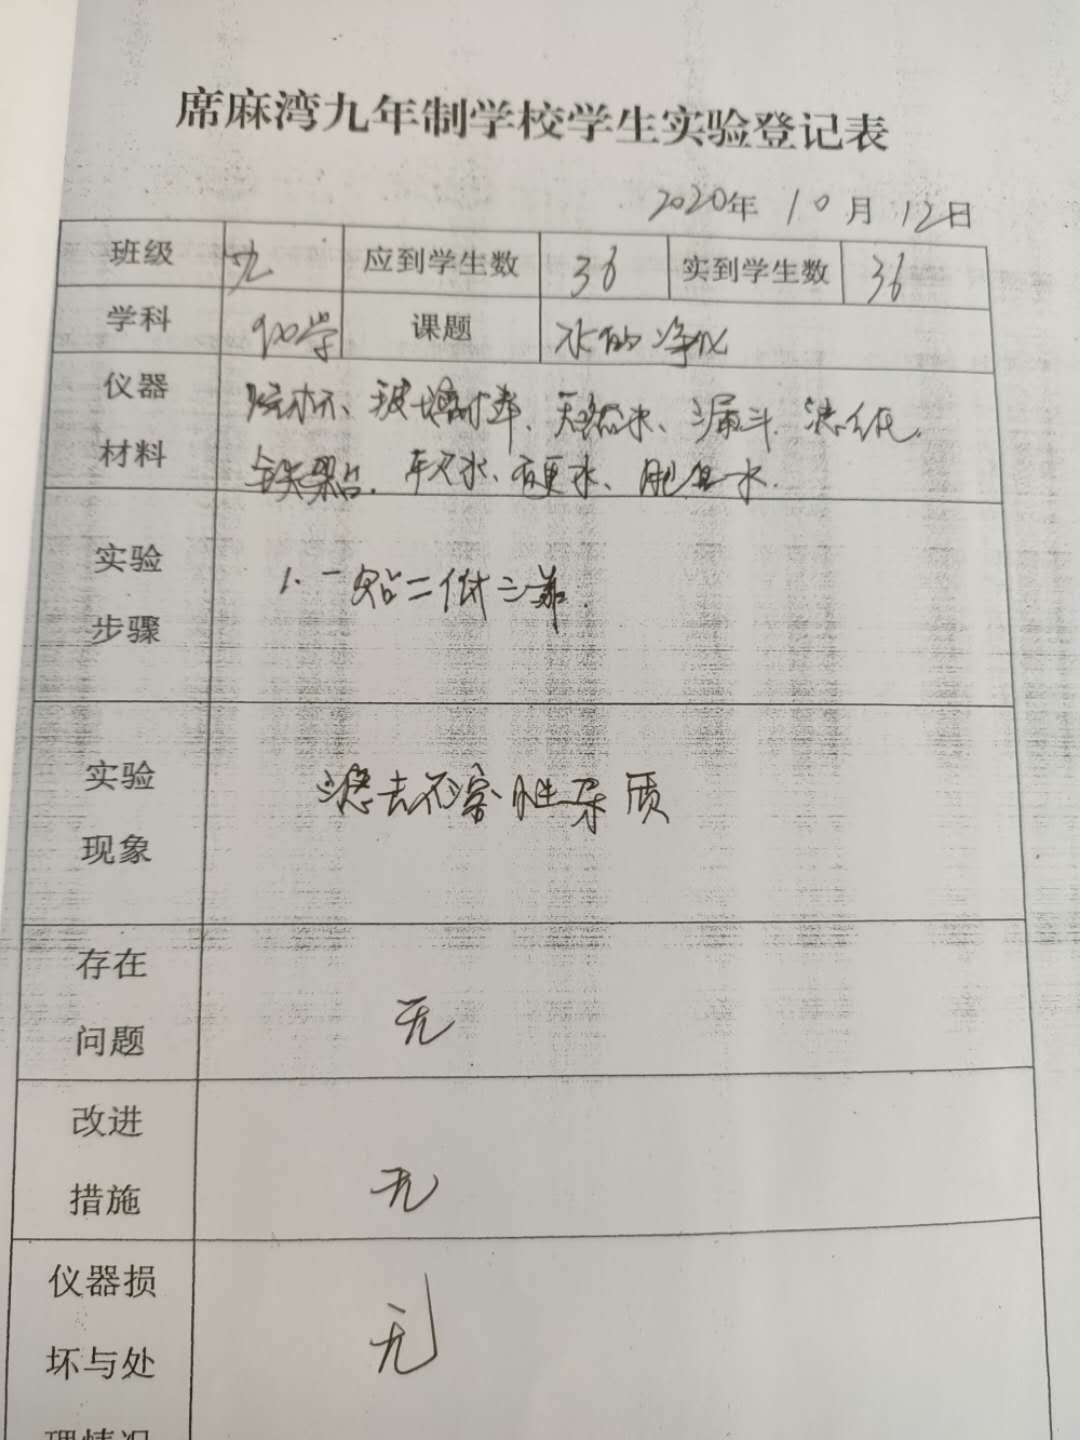 席麻湾九年制学校学生实验登记表
2020年 10月 12日
班级 九 应到学生数 36 实到学生数 36
学科 化学 课题 水的净化
仪器 烧杯、玻璃棒、天然水、漏斗、滤纸、
材料 铁架台、软水、硬水、肥皂水.
实验
步骤
1. 一贴二低三靠.
实验
现象
滤去不溶性杂质
存在
问题
无
改进
措施
无
仪器损
坏与处
理情况
无